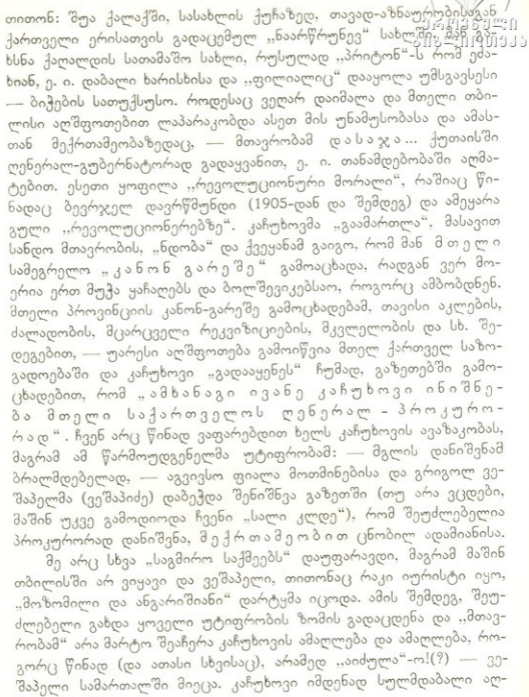 თითონ: შუა ქალაქში, სასახლის ქუჩაზედ, თავად-აზნაურობისაგან
ქართველი ერისათვის გადაცემულ „ნაარწრუნევ“ სახლში, მან გა-
ხსნა ქაღალდის სათამაშო სახლი, რუსულად „პრიტონ“-ს რომ ეძა-
ხიან, ე. ი. დაბალი ხარისხისა და „ფილიალიც“ დააყოლა უმსგავსესი
— ბიჭების სათუქსუსო. როდესაც ვეღარ დაიმალა და მთელი თბი-
ლისი აღშფოთებით ლაპარაკობდა ასეთ მის უნამუსობასა და ამას-
თან მექრთამეობაზედაც, — მთავრობამ დ ა ს ა ჯ ა... ქუთაისში
ღენერალ-გუბერნატორად გადაყვანით, ე. ი. თანამდებობაში აღმა-
ტებით. ესეთი ყოფილა „რევოლუციონური მორალი“, რაშიაც წი-
ნადაც ბევრჯელ დავრწმუნდი (1905-დან და შემდეგ) და ამეყარა
გული „რევოლუციონერებზე“. კაჩუხოვმა „გაამართლა“, მასავით
სანდო მთავრობის, „ნდობა“ და ქვეყანამ გაიგო, რომ მან მ თ ე ლ ი
სამეგრელო „კ ა ნ ო ნ გ ა რ ე შ ე“ გამოაცხადა, რადგან ვერ მო-
ერია ერთ მუჭა ყაჩაღებს და ბოლშევიკებსაო, როგორც ამბობდნენ.
მთელი პროვინციის კანონ-გარეშე გამოცხადებამ, თავისი აკლების,
ძალადობის, მცარცველი რეკვიზიციების, მკვლელობის და სხ. შე-
დეგებით, — უარესი აღშფოთება გამოიწვია მთელ ქართველ საზო-
გადოებაში და კაჩუხოვი „გადააყენეს“ ჩუმად, გაზეთებში გამო-
ცხადებით, რომ „ა მ ხ ა ნ ა გ ი ი ვ ა ნ ე კ ა ჩ უ ხ ო ვ ი ი ნ ი შ ნ ე-
ბ ა მ თ ე ლ ი ს ა ქ ა რ თ ვ ე ლ ო ს ღ ე ნ ე რ ა ლ - პ რ ო კ უ რ ო-
რ ა დ“. ჩვენ არც წინად ვაფარებდით ხელს კაჩუხოვის ავაზაკობას,
მაგრამ ამ წარმოუდგენელმა უტიფრობამ: — მგლის დანიშვნამ
ბრალმდებელად, — აგვივსო ფიალა მოთმინებისა და გრიგოლ ვე-
შაპელმა (ვეშაპიძე) დაბეჭდა შენიშნვა გაზეთში (თუ არა ვცდები,
მაშინ უკვე გამოდიოდა ჩვენი „სალი კლდე“), რომ შეუძლებელია
პროკურორად დანიშვნა, მ ე ქ რ თ ა მ ე ო ბ ი თ ცნობილ ადამიანისა.
მე არც სხვა „საგმირო საქმეებს“ დაუფარავდი, მაგრამ მაშინ
თბილისში არ ვიყავი და ვეშაპელი, თითონაც რაკი იურისტი იყო,
„მოზომილი და ანგარიშიანი“ დარტყმა იცოდა. ამის შემდეგ, შეუ-
ძლებელი გახდა ყოველი უტიფრობის ზომის გადაცდენა და „მთავ-
რობამ“ არა მარტო შეაჩერა კაჩუხოვის ამაღლება და ამაღლება, რო-
გორც წინად (და ათასი სხვისაც), არამედ „აიძულა“-ო!(?) — ვე-
შაპელი სამართალში მიეცა. კაჩუხოვი იმდენად სულმდაბალი აღ-